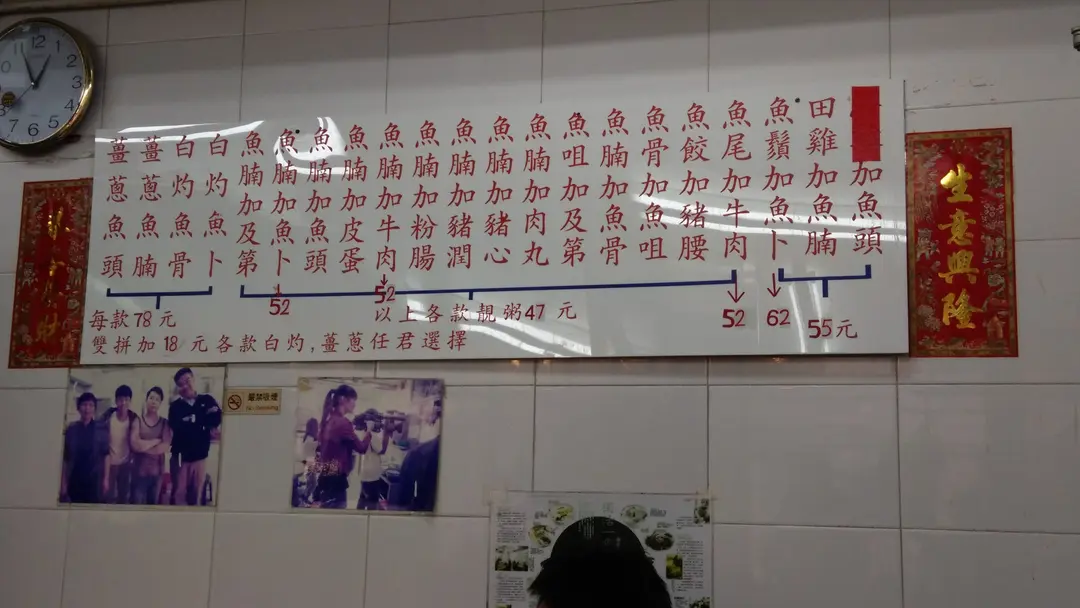 加魚頭
田雞加魚腩
魚鬚加魚卜
魚尾加牛肉
魚餃加豬腰
魚骨加魚咀
魚腩加魚骨
魚咀加及第
魚腩加肉丸
魚腩加豬心
魚腩加豬潤
魚腩加粉腸
魚腩加牛肉
魚腩加皮蛋
魚腩加魚頭
魚腩加魚卜
魚腩加及第
白灼魚卜
白灼魚骨
薑蔥魚腩
薑蔥魚頭
55元
62
52
52
52
以上各款靚粥47元
每款78元
雙拼加18元各款白灼,薑蔥任君選擇
生意興隆
嚴禁吸煙
No smoking